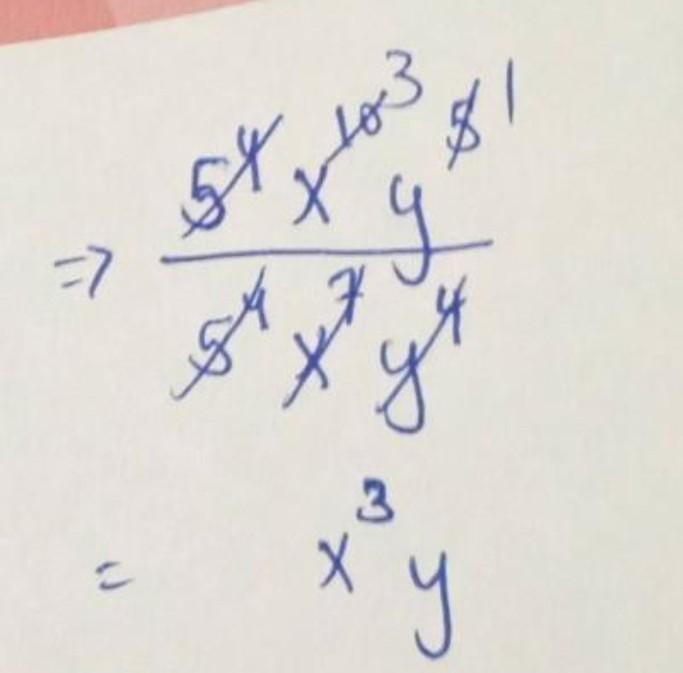 ⇒ 5⁴ x¹⁰ ³ y⁵ ¹
5⁴ x⁷ y⁴
= x³ y